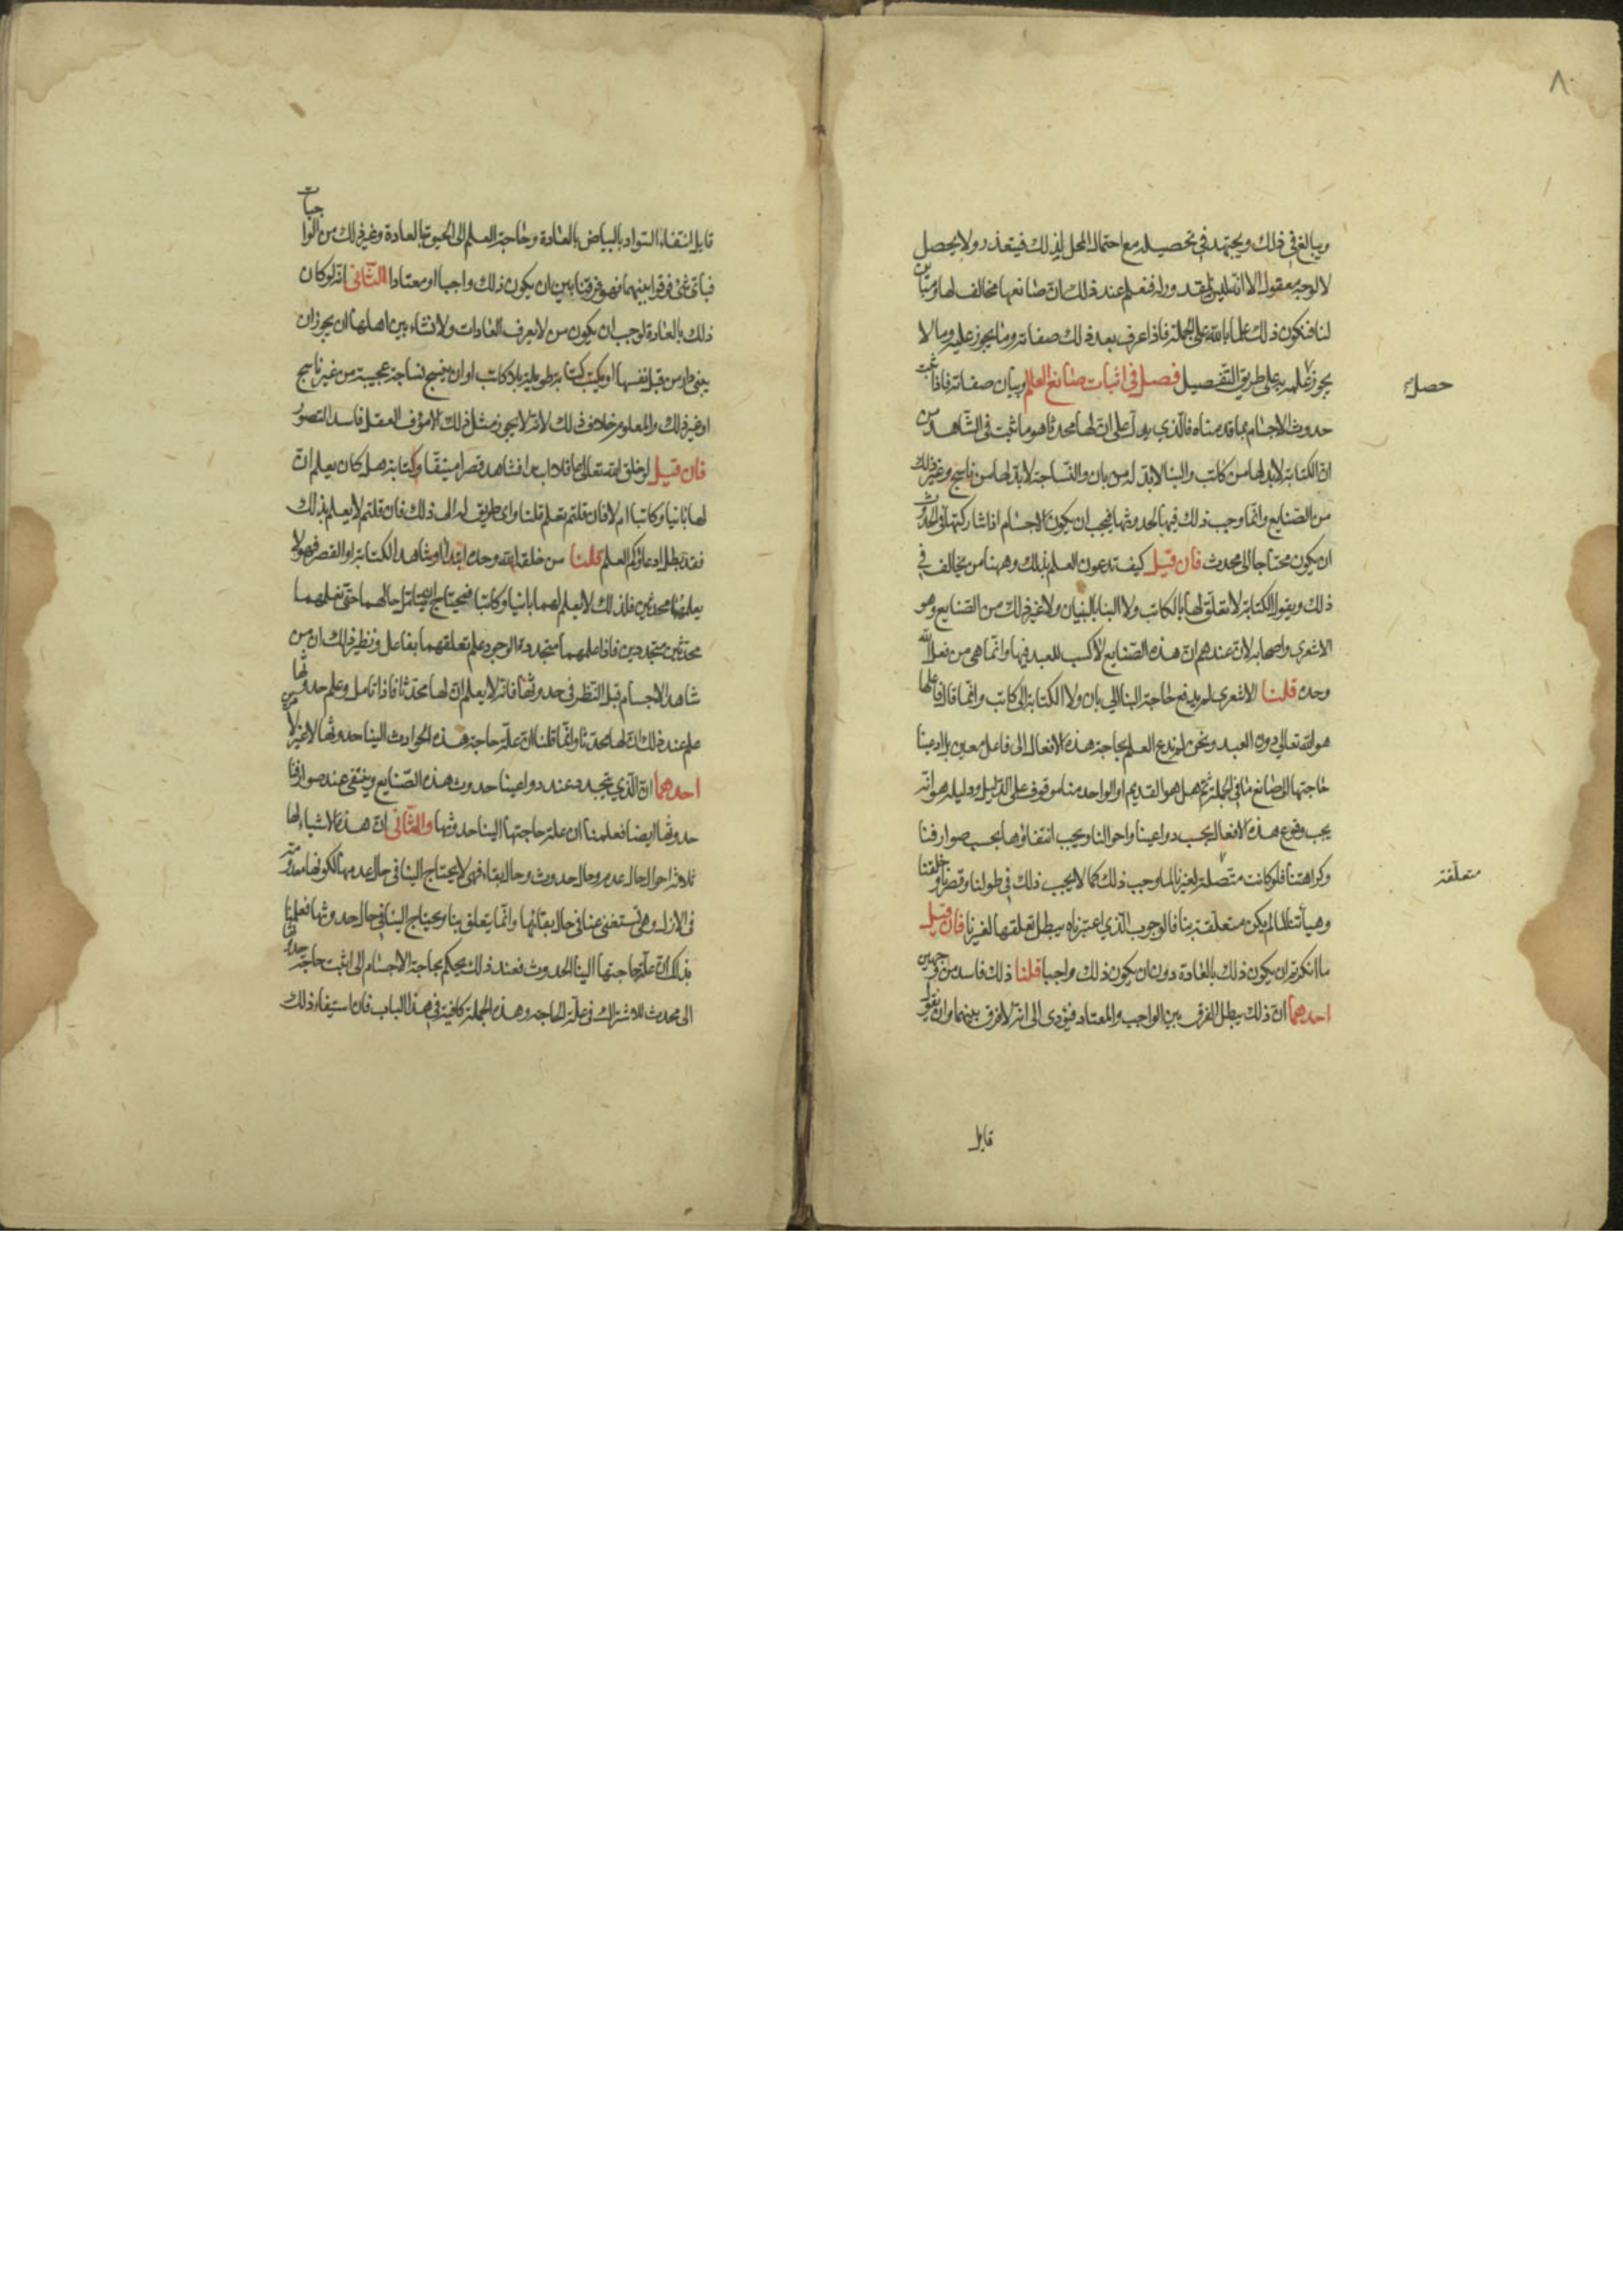 ٨
ويبالغ في ذلك ويجتهد في تحصيله مع احتمال المحل لذلك فيتعذر ولا يحصل
لا لوجه معقول الا انه ليس بمقدور له فنعلم عند ذلك ان صانعها مخالف لها ومباين
لنا فنكون ذلك علما بالله على الجملة فاذا عرف بعد ذلك صفاته وما يجوز عليه وما لا
يجوز علمه به على طريق التفصيل فصل في اثبات صانع العالم وبيان صفاته فاذا ثبت
حصل
حدوث الاجسام بما قدمناه فالذي يدل على ان لها محدثا هو ما ثبت في الشاهد من
ان الكتابة لا بد لها من كاتب والبنا لا بد له من بان والنساجة لا بد لها من ناسج وغير ذلك
من الصنايع وانما وجب ذلك فيها لحدوثها فيجب ان يكون الاجسام اذا شاركتها في الحدوث
ان يكون محتاجا الى محدث فان قيل كيف تدعون العلم بذلك وههنا من يخالف في
ذلك ويقول الكتابة لا تعلق لها بالكاتب ولا البنا بالبنيان ولا غير ذلك من الصنايع وهو
الاشعري واصحابه لان عندهم ان هذه الصنايع لا كسب للعبد فيها وانما هي من فعل الله
وحده قلنا الاشعري لم يدفع حاجة البنا الى بان ولا الكتابة الى كاتب وانما قال فاعلها
هو الله تعالى دون العبد ونحن لم ندع العلم بحاجة هذه الافعال الى فاعل معين بل ادعينا
حاجتها الى صانع ما في الجملة ثم هل هو القديم او الواحد منا موقوف على الدليل ودليله هو انه
يجب وقوع هذه الافعال بحسب دواعينا واحوالنا ويجب انتفاؤها بحسب صوارفنا
وكراهتنا فلو كانت متصلة لغيرنا لما وجب ذلك كما لا يجب ذلك في طولنا وقصرنا وخلقنا
متعلقة
وهيأتنا لما لم يكن متعلقة بنا فالوجوب الذي اعتبرناه يبطل تعلقها لغيرنا فان قيل
ما انكرتم ان يكون ذلك بالعادة دون ان يكون ذلك واجبا قلنا ذلك فاسد من وجهين
احدهما ان ذلك يبطل الفرق بين الواجب والمعتاد فيؤدى الى انه لا فرق بينهما وان يقول
قايل
قايل انتفاء السواد بالبياض بالعادة وحاجة العلم الى الحيوة بالعادة وغير ذلك من الواجبات
فباى شئ فرقوا بينهما فهو فرقنا بين ان يكون ذلك واجبا او معتادا الثانى انه لو كان
ذلك بالعادة لوجب ان يكون من لا يعرف العادات ولا نشاء بين اهلها ان يجوز ان
يبنى دار من قبل نفسها او يكتب كتابة طويلة بلا كاتب او ان ينسج نساجة عجيبة من غير ناسج
او غير ذلك والمعلوم خلاف ذلك لانه لا يجوز مثل ذلك الا مؤف العقل فاسد التصور
فان قيل لو خلق الله تعالى عاقلا ابتداء فشاهد قصرا مبنيا وكتابة هل كان يعلم ان
لها بانيا وكاتبا ام لا فان قلتم يعلم قلنا واى طريق له الى ذلك فان قلتم لا يعلم بذلك
فقد بطل ادعاؤكم العلم قلنا من خلقه الله وحده ابتداء وشاهد الكتابة او القصر فهو لا
يعلمهما محدثين فلذلك لا يعلم لهما بانيا وكاتبا فيحتاج ان يتامل حالهما حتى نعلمهما
محدثين متجددين فاذا علمهما متجددة الوجود علم تعلقهما بفاعل ونظير ذلك ان من
شاهد الاجسام قبل النظر في حدوثها فانه لا يعلم ان لها محدثا فاذا تامل وعلم حدوثها
علم عند ذلك ان لها محدثا وانما قلنا ان علة حاجة هذه الحوادث الينا حدوثها لا غير لا مرين
احدهما ان الذي يتجدد عند دواعينا حدوث هذه الصنايع وينتفى عند صوارفنا
حدوثها ايضا فعلمنا ان علة حاجتها الينا حدوثها والثانى ان هذه الاشياء لها
ثلاثة احوال حال عدم وحال حدوث وحال بقاء فهى لا يحتاج الينا في حال عدمها لكونها معدومة
في الازل وهى تستغنى عنا في حال بقائها وانما يتعلق بنا ويحتاج الينا في حال حدوثها فعلمنا
بذلك ان علة حاجتها الينا الحدوث فعند ذلك يحكم بحاجة الاجسام الى اثبت حاجة حدوثها
الى محدث للاشتراك في علة الحاجة وهذه الجملة كافية في هذا الباب فان استيفاء ذلك